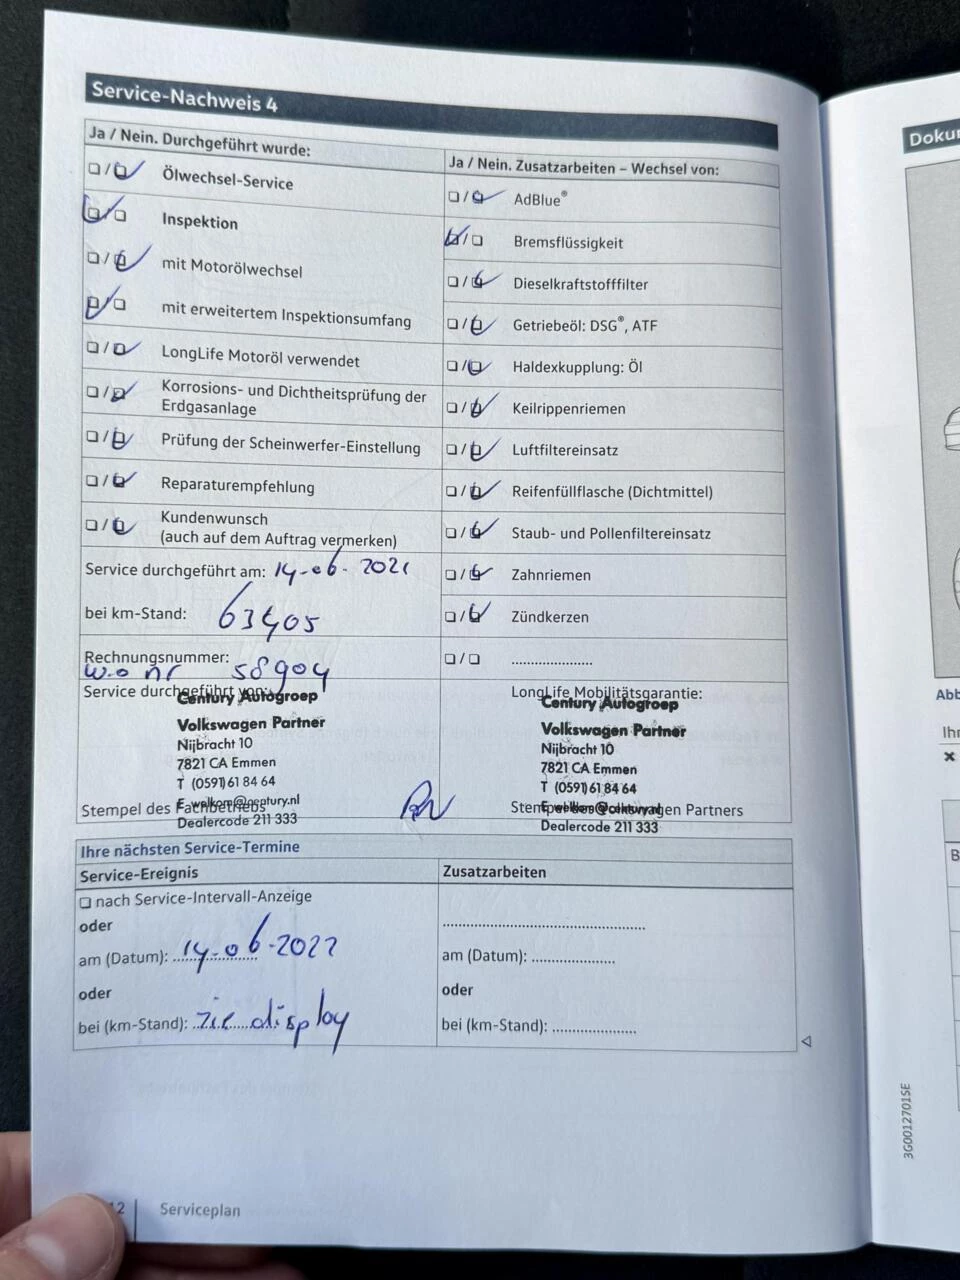 Service-Nachweis 4
Ja / Nein. Durchgeführt wurde:
❑ / ❑ Ölwechsel-Service
❑ / ❑ Inspektion
❑ / ❑ mit Motorölwechsel
❑ / ❑ mit erweitertem Inspektionsumfang
❑ / ❑ LongLife Motoröl verwendet
❑ / ❑ Korrosions- und Dichtheitsprüfung der
Erdgasanlage
❑ / ❑ Prüfung der Scheinwerfer-Einstellung
❑ / ❑ Reparaturempfehlung
❑ / ❑ Kundenwunsch
(auch auf dem Auftrag vermerken)
Service durchgeführt am: 14-06-2021
bei km-Stand: 63405
Rechnungsnummer:
w.o nr 58904
Service durchgeführt von:
Century Autogroep
Volkswagen Partner
Nijbracht 10
7821 CA Emmen
T (0591) 61 84 64
E welkom@century.nl
Dealercode 211 333
Stempel des Fachbetriebs
Ja / Nein. Zusatzarbeiten – Wechsel von:
❑ / ❑ AdBlue®
❑ / ❑ Bremsflüssigkeit
❑ / ❑ Dieselkraftstofffilter
❑ / ❑ Getriebeöl: DSG®, ATF
❑ / ❑ Haldexkupplung: Öl
❑ / ❑ Keilrippenriemen
❑ / ❑ Luftfiltereinsatz
❑ / ❑ Reifenfüllflasche (Dichtmittel)
❑ / ❑ Staub- und Pollenfiltereinsatz
❑ / ❑ Zahnriemen
❑ / ❑ Zündkerzen
❑ / ❑ .....................
LongLife Mobilitätsgarantie:
Century Autogroep
Volkswagen Partner
Nijbracht 10
7821 CA Emmen
T (0591) 61 84 64
E welkom@century.nl
Dealercode 211 333
Stempel des Volkswagen Partners
Ihre nächsten Service-Termine
Service-Ereignis
❑ nach Service-Intervall-Anzeige
oder
am (Datum): 14-06-2022
oder
bei (km-Stand): zie display
Zusatzarbeiten
.....................................................
am (Datum): ......................
oder
bei (km-Stand): ......................
2 Serviceplan
Doku
Abb
Ihr
3G0012701SE